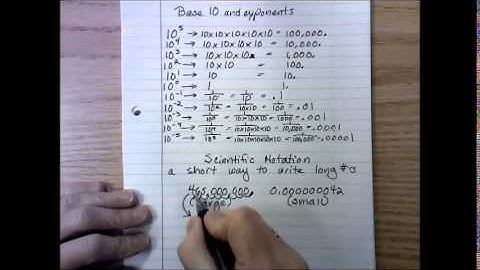 Base 10 and exponents
10⁵ → 10x10x10x10x10 = 100,000.
10⁴ → 10x10x10x10 = 10,000.
10³ → 10x10x10 = 1,000.
10² → 10x10 = 100.
10¹ → 10 = 10.
10⁰ → 1 1.
10⁻¹ → 1/10¹ = 1/10 = .1
10⁻² → 1/10² = 1/10x10 = 1/100 = .01
10⁻³ → 1/10³ = 1/10x10x10 = 1/1000 = .001
10⁻⁴ → 1/10⁴ = 1/10x10x10x10 = 1/10,000 = .0001
10⁻⁵ → 1/10⁵ = 1/10x10x10x10x10 = 1/100,000 = .00001
Scientific Notation
a short way to write long #'s
465,000,000. 0.000000042
(large) (small)